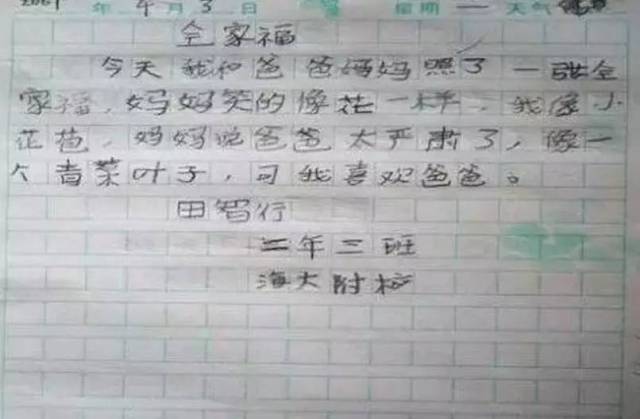 年 4月3日 星期一 天气
全家福
今天我和爸爸妈妈照了一张全
家福,妈妈笑的像花一样,我像小
花苞,妈妈说爸爸太严肃了,像一
个青菜叶子,可我喜欢爸爸。
田智行
二年三班
海大附校